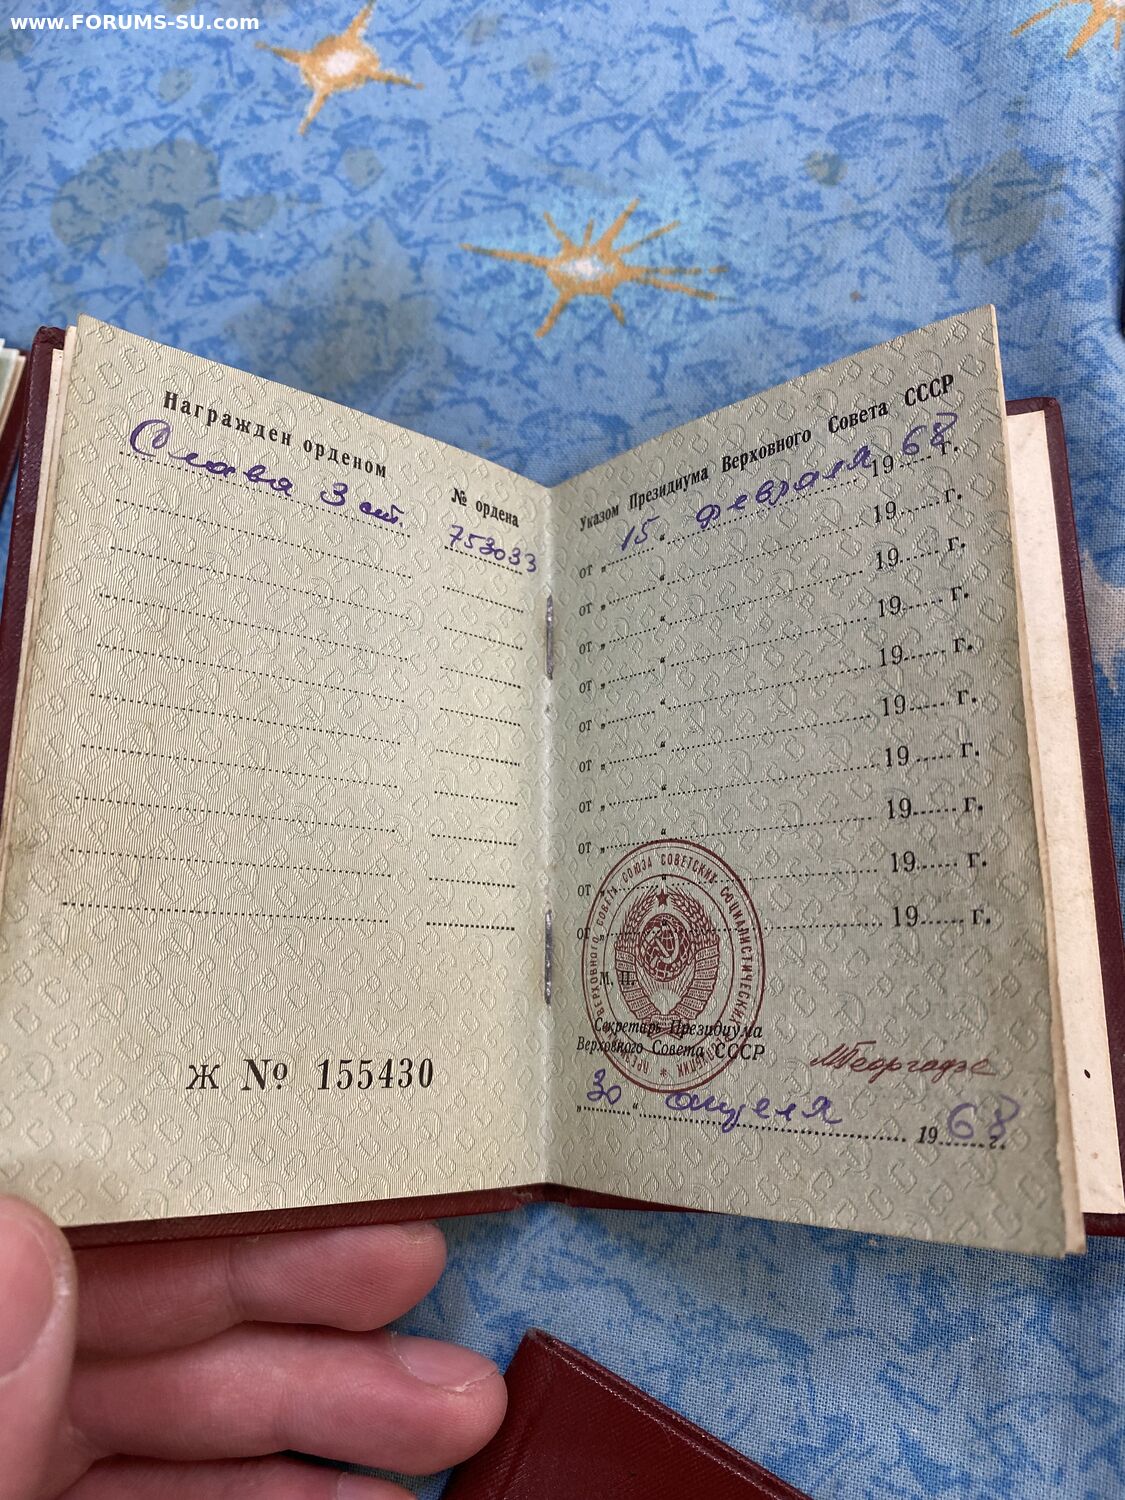 www.FORUMS-SU.com
Награжден орденом
№ ордена
Слава 3 ст.
753033
Ж № 155430
Указом Президиума Верховного Совета СССР
от „ 15 “ февраля 19 68 г.
от „ “ 19 г.
от „ “ 19 г.
от „ “ 19 г.
от „ “ 19 г.
от „ “ 19 г.
от „ “ 19 г.
от „ “ 19 г.
от „ “ 19 г.
от „ “ 19 г.
ВЕРХОВНОГО СОВЕТА СОЮЗА СОВЕТСКИХ СОЦИАЛИСТИЧЕСКИХ
М. П.
Секретарь Президиума
Верховного Совета СССР
МГеоргадзе
„ 30 “ апреля 19 68 г.